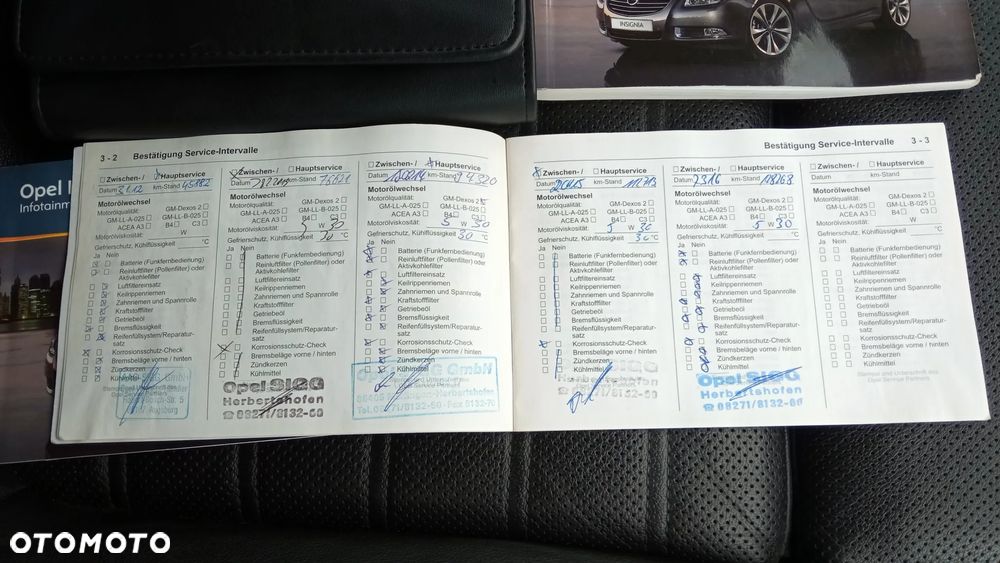 INSIGNIA
Opel
Infotainm
3 - 2 Bestätigung Service-Intervalle
Zwischen- / Hauptservice
Datum 3.1.12 km-Stand 45182
Motorölwechsel
Motorölqualität:
GM-Dexos 2
GM-LL-A-025 GM-LL-B-025
ACEA A3 B4 C3
Motorölviskosität: W
Gefrierschutz, Kühlflüssigkeit °C
Ja Nein
Batterie (Funkfernbedienung)
Reinluftfilter (Pollenfilter) oder
Aktivkohlefilter
Luftfiltereinsatz
Keilrippenriemen
Zahnriemen und Spannrolle
Kraftstofffilter
Getriebeöl
Bremsflüssigkeit
Reifenfüllsystem/Reparatur-
satz
Korrosionsschutz-Check
Bremsbeläge vorne / hinten
Zündkerzen
Kühlmittel
Augsburg
Zwischen- / Hauptservice
Datum km-Stand
Motorölwechsel
Motorölqualität:
GM-Dexos 2
GM-LL-A-025 GM-LL-B-025
ACEA A3 B4 C3
Motorölviskosität: 5 W 30
Gefrierschutz, Kühlflüssigkeit 30 °C
Ja Nein
Batterie (Funkfernbedienung)
Reinluftfilter (Pollenfilter) oder
Aktivkohlefilter
Luftfiltereinsatz
Keilrippenriemen
Zahnriemen und Spannrolle
Kraftstofffilter
Getriebeöl
Bremsflüssigkeit
Reifenfüllsystem/Reparatur-
satz
Korrosionsschutz-Check
Bremsbeläge vorne / hinten
Zündkerzen
Kühlmittel
Opel SIGG
Herbertshofen
☎ 08271/8132-60
Zwischen- / Hauptservice
Datum km-Stand 94320
Motorölwechsel
Motorölqualität:
GM-Dexos 2
GM-LL-A-025 GM-LL-B-025
ACEA A3 B4 C3
Motorölviskosität: 5 W 30
Gefrierschutz, Kühlflüssigkeit 30 °C
Ja Nein
Batterie (Funkfernbedienung)
Reinluftfilter (Pollenfilter) oder
Aktivkohlefilter
Luftfiltereinsatz
Keilrippenriemen
Zahnriemen und Spannrolle
Kraftstofffilter
Getriebeöl
Bremsflüssigkeit
Reifenfüllsystem/Reparatur-
satz
Korrosionsschutz-Check
Bremsbeläge vorne / hinten
Zündkerzen
Kühlmittel
GmbH
Herbertshofen
Tel. 08271/8132-60 · Fax 8132-70
Bestätigung Service-Intervalle 3 - 3
Zwischen- / Hauptservice
Datum km-Stand
Motorölwechsel
Motorölqualität:
GM-Dexos 2
GM-LL-A-025 GM-LL-B-025
ACEA A3 B4 C3
Motorölviskosität: 5 W 30
Gefrierschutz, Kühlflüssigkeit 30 °C
Ja Nein
Batterie (Funkfernbedienung)
Reinluftfilter (Pollenfilter) oder
Aktivkohlefilter
Luftfiltereinsatz
Keilrippenriemen
Zahnriemen und Spannrolle
Kraftstofffilter
Getriebeöl
Bremsflüssigkeit
Reifenfüllsystem/Reparatur-
satz
Korrosionsschutz-Check
Bremsbeläge vorne / hinten
Zündkerzen
Kühlmittel
Zwischen- / Hauptservice
Datum 7.3.16 km-Stand
Motorölwechsel
Motorölqualität:
GM-Dexos 2
GM-LL-A-025 GM-LL-B-025
ACEA A3 B4 C3
Motorölviskosität: 5 W 30
Gefrierschutz, Kühlflüssigkeit °C
Ja Nein
Batterie (Funkfernbedienung)
Reinluftfilter (Pollenfilter) oder
Aktivkohlefilter
Luftfiltereinsatz
Keilrippenriemen
Zahnriemen und Spannrolle
Kraftstofffilter
Getriebeöl
Bremsflüssigkeit
Reifenfüllsystem/Reparatur-
satz
Korrosionsschutz-Check
Bremsbeläge vorne / hinten
Zündkerzen
Kühlmittel
Opel SIGG
Herbertshofen
☎ 08271/8132-60
Zwischen- / Hauptservice
Datum km-Stand
Motorölwechsel
Motorölqualität:
GM-Dexos 2
GM-LL-A-025 GM-LL-B-025
ACEA A3 B4 C3
Motorölviskosität: W
Gefrierschutz, Kühlflüssigkeit °C
Ja Nein
Batterie (Funkfernbedienung)
Reinluftfilter (Pollenfilter) oder
Aktivkohlefilter
Luftfiltereinsatz
Keilrippenriemen
Zahnriemen und Spannrolle
Kraftstofffilter
Getriebeöl
Bremsflüssigkeit
Reifenfüllsystem/Reparatur-
satz
Korrosionsschutz-Check
Bremsbeläge vorne / hinten
Zündkerzen
Kühlmittel
Stempel und Unterschrift des
Opel Service Partners
OTOMOTO